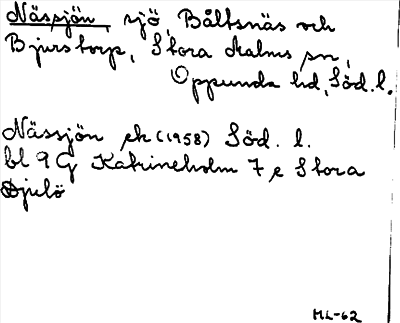 Nässjön, sjö, Båltsnäs och
Bjurstorp, Stora Malms sn,
Oppunda hd, Söd. l.
Nässjön ek (1958) Söd. l.
bl 9 G Katrineholm 7 e Stora
Djulö
ML-62